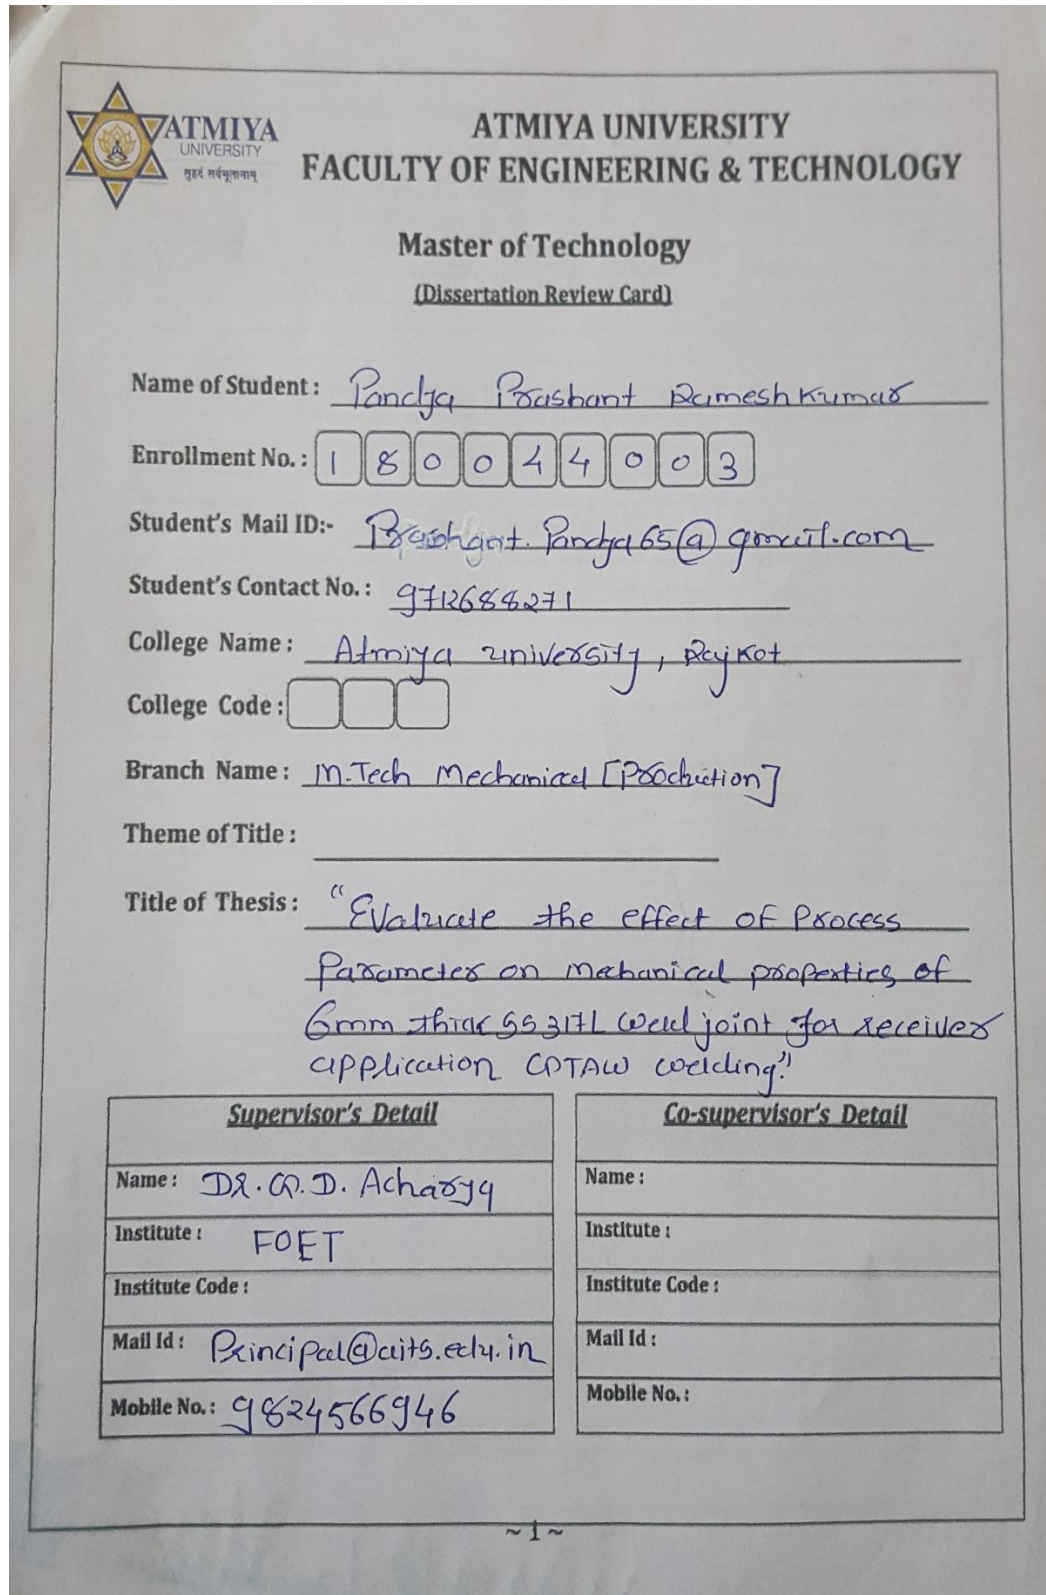 ATMIYA
UNIVERSITY
सुहृदं सर्वभूतानाम्
ATMIYA UNIVERSITY
FACULTY OF ENGINEERING & TECHNOLOGY
Master of Technology
(Dissertation Review Card)
Name of Student : Pandya Prashant Rameshkumar
Enrollment No. : 180044003
Student's Mail ID:- Prashant.Pandya65@gmail.com
Student's Contact No. : 9712688271
College Name : Atmiya University, Rajkot
College Code :
Branch Name : M.Tech Mechanical [Production]
Theme of Title :
Title of Thesis : "Evaluate the effect of Process
Parameter on mechanical properties of
6mm thick SS 317L weld joint for receiver
application GTAW welding."
Supervisor's Detail
Name : Dr. G. D. Acharya
Institute : FOET
Institute Code :
Mail Id : Principal@aits.edu.in
Mobile No. : 9824566946
Co-supervisor's Detail
Name :
Institute :
Institute Code :
Mail Id :
Mobile No. :
~ 1 ~